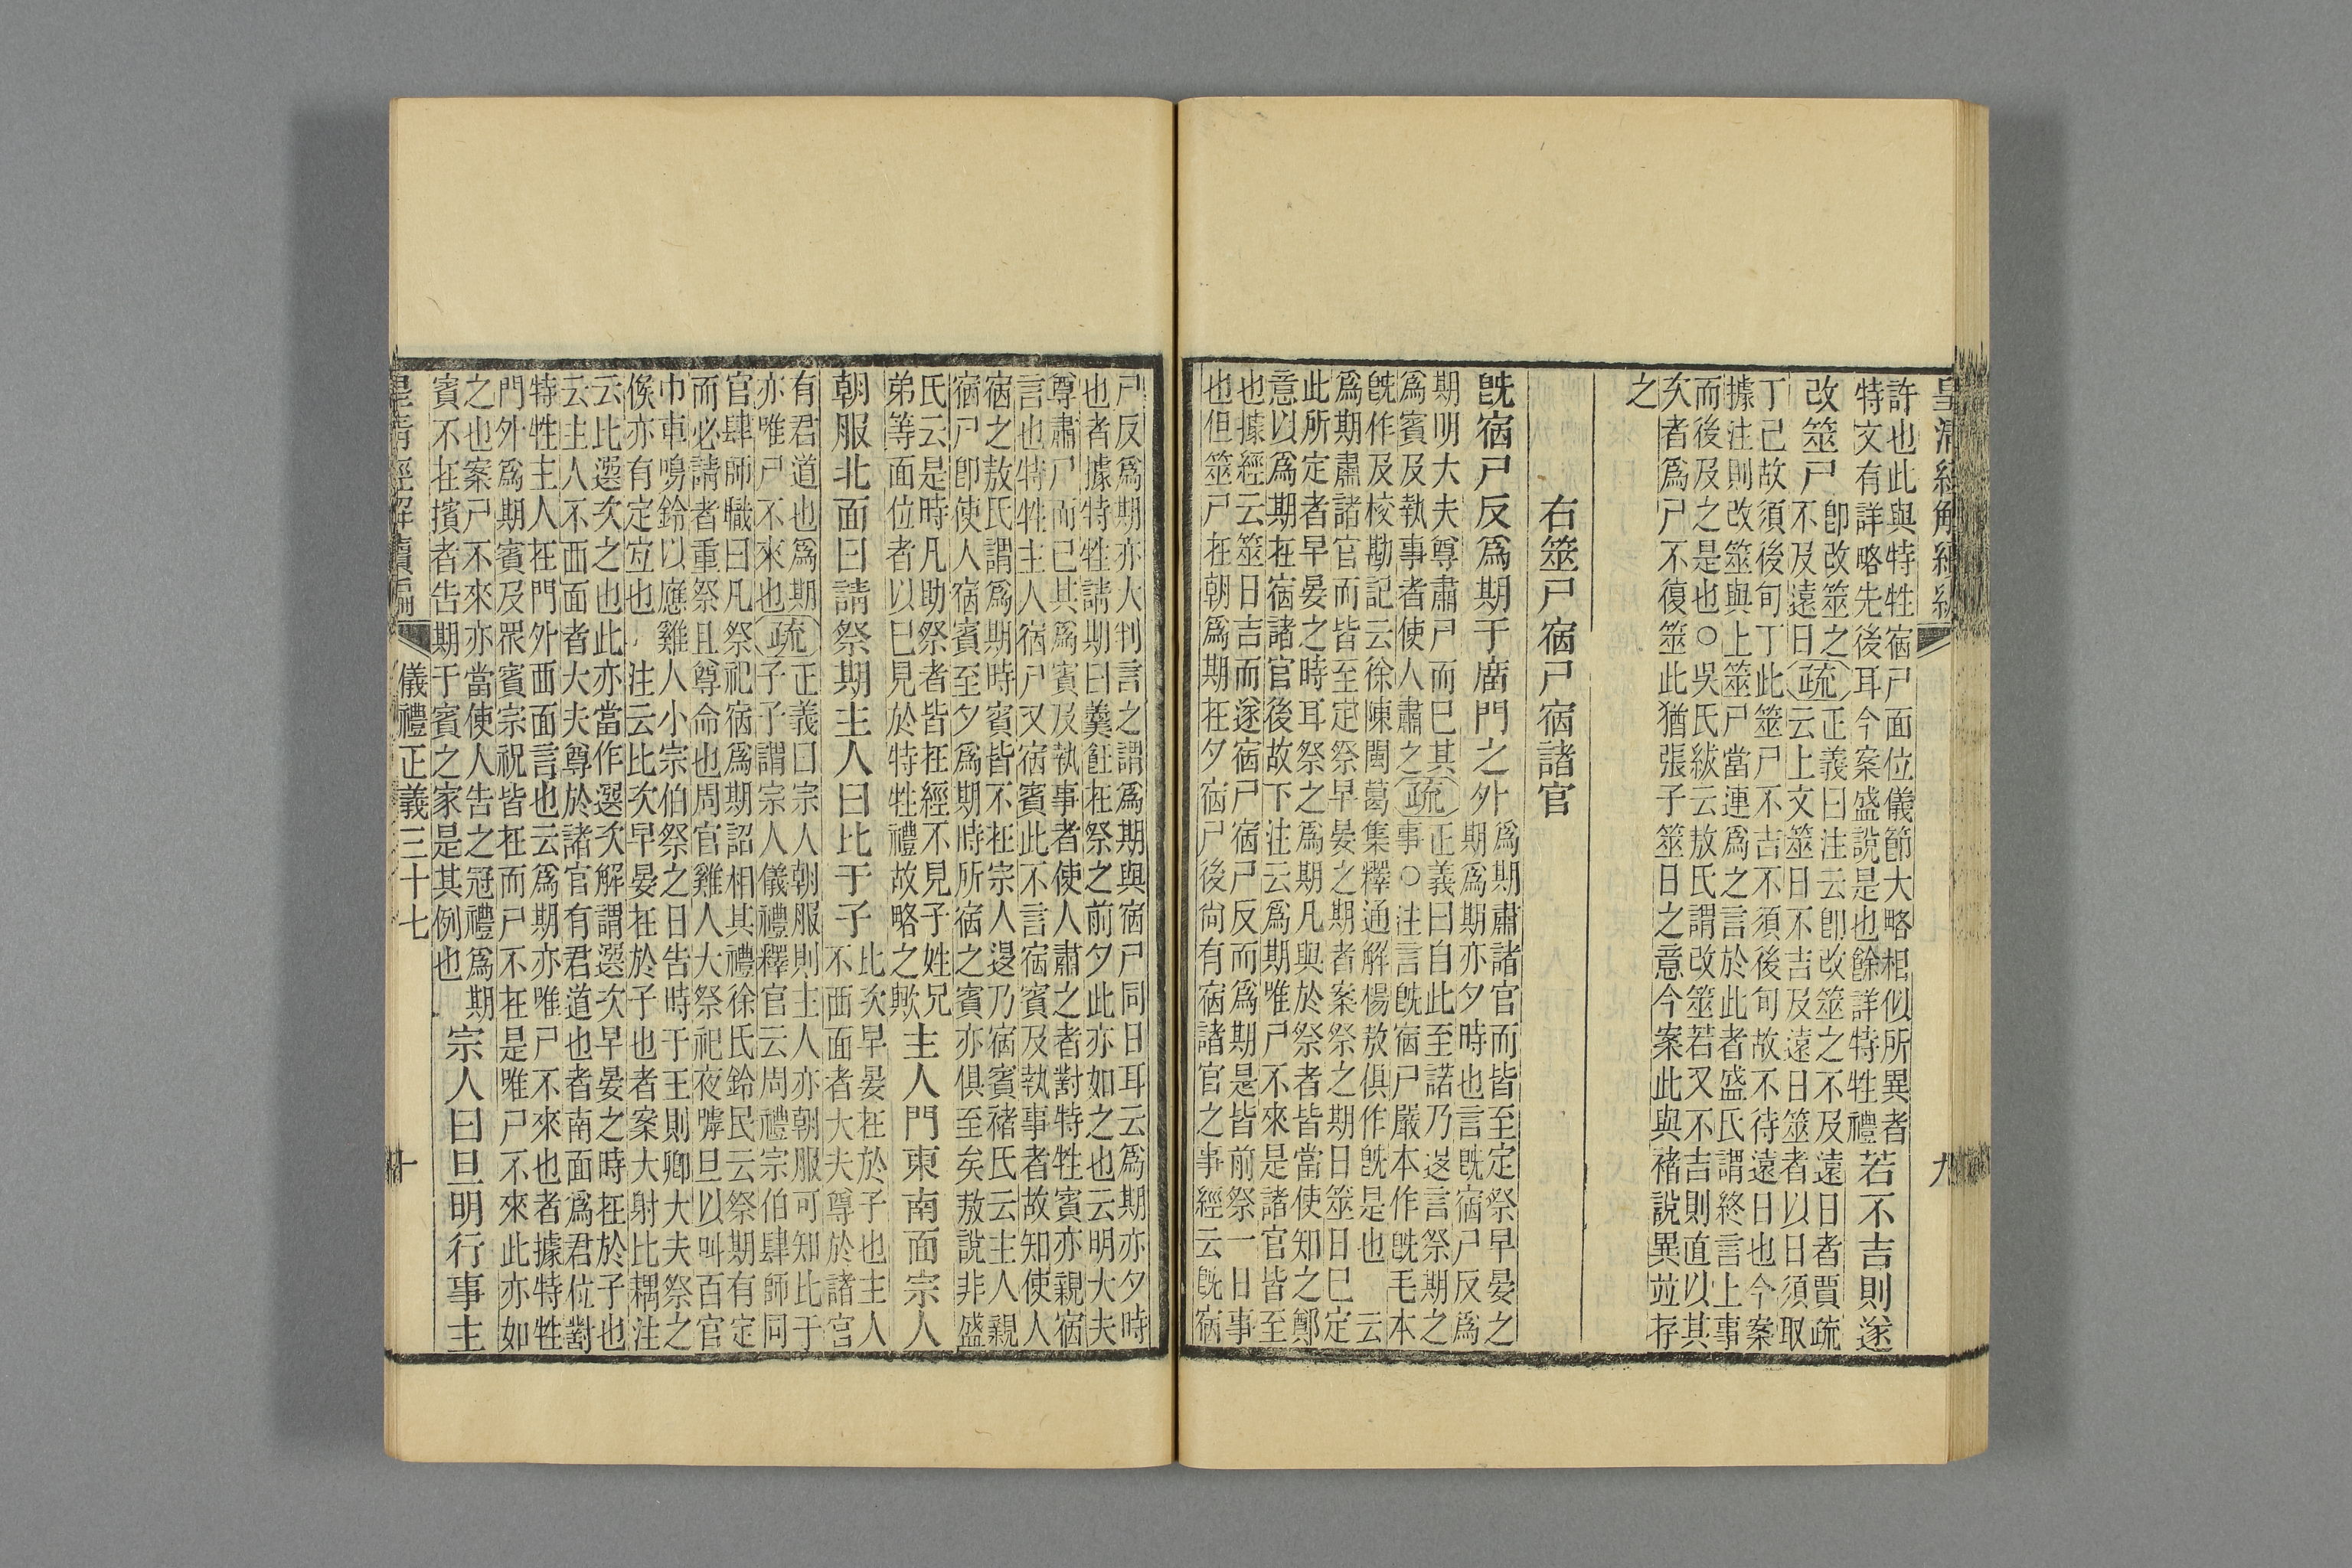 許也此與特牲宿尸面位儀節大略相似所異者
特文有詳略先後耳今案盛說是也餘詳特牲禮
若不吉則遂
改筮尸
卽改筮之
不及遠日
疏
正義曰注云卽改筮之不及遠日者賈疏
云上文筮日不吉及遠日筮者以日須取
丁己故須後旬丁此筮尸不吉不須後旬故不待遠日也今案
據注則改筮與上筮尸當連爲之言於此者盛氏謂終言上事
而後及之是也○吳氏紱云敖氏謂改筮若又不吉則直以其
次者爲尸不復筮此猶張子筮日之意今案此與褚說異竝存
之
右筮尸宿尸宿諸官
旣宿尸反爲期于廟門之外
爲期肅諸官而皆至定祭早晏之
期爲期亦夕時也言旣宿尸反爲
期明大夫尊肅尸而已其
爲賓及執事者使人肅之
疏
正義曰自此至諾乃退言祭期之
事○注言旣宿尸嚴本作旣毛本
旣作及校勘記云徐陳閩葛集釋通解楊敖俱作旣是也　云
爲期肅諸官而皆至定祭早晏之期者案祭之期日筮日已定
此所定者早晏之時耳祭之爲期凡與於祭者皆當使知之鄭
意以爲期在宿諸官後故下注云爲期唯尸不來是諸官皆至
也據經云筮日吉而遂宿尸宿尸反而爲期是皆前祭一日事
也但筮尸在朝爲期在夕宿尸後尙有宿諸官之事經云旣宿
尸反爲期亦大判言之謂爲期與宿尸同日耳云爲期亦夕時
也者據特牲請期曰羹飪在祭之前夕此亦如之也云明大夫
尊肅尸而已其爲賓及執事者使人肅之者對特牲賓亦親宿
言也特牲主人宿尸又宿賓此不言宿賓及執事者故知使人
宿之敖氏謂爲期時賓皆不在宗人退乃宿賓褚氏云主人親
宿尸卽使人宿賓至夕爲期時所宿之賓亦俱至矣敖說非盛
氏云是時凡助祭者皆在經不見子姓兄
弟等面位者以已見於特牲禮故略之歟
主人門東南面宗人
朝服北面曰請祭期主人曰比于子
比次早晏在於子也主人
不西面者大夫尊於諸官
有君道也爲期
亦唯尸不來也
疏
正義曰宗人朝服則主人亦朝服可知比于
子子謂宗人儀禮釋官云周禮宗伯肆師同
官肆師職曰凡祭祀宿爲期詔相其禮徐氏鈴民云祭期有定
而必請者重祭且尊命也周官雞人大祭祀夜嘑旦以叫百官
巾車鳴鈴以應雞人小宗伯祭之日告時于王則卿大夫祭之
條亦有定宜也　注云比次早晏在於子也者案大射比耦注
云此選次之也此亦當作選次解謂選次早晏之時在於子也
云主人不西面者大夫尊於諸官有君道也者南面爲君位對
特牲主人在門外西面言也云爲期亦唯尸不來也者據特牲
門外爲期賓及眾賓宗祝皆在而尸不在是唯尸不來此亦如
之也案尸不來亦當使人告之冠禮爲期
賓不在擯者告期于賓之家是其例也
宗人曰旦明行事主
儀禮正義三十七
十